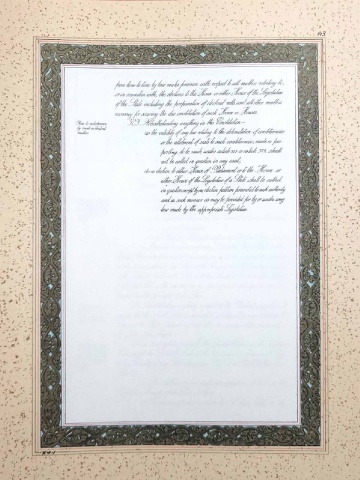 113
from time to time by law make provision with respect to all matters relating to,
or in connection with, the elections to the House or either House of the Legislature
of the State including the preparation of electoral rolls and all other matters
necessary for securing the due constitution of such House or Houses.
Bar to interference
by courts in electoral
matters.
329. Notwithstanding anything in this Constitution—
(a) the validity of any law relating to the delimitation of constituencies
or the allotment of seats to such constituencies, made or pur-
porting to be made under article 327 or article 328, shall
not be called in question in any court;
(b) no election to either House of Parliament or to the House or
either House of the Legislature of a State shall be called
in question except by an election petition presented to such authority
and in such manner as may be provided for by or under any
law made by the appropriate Legislature.